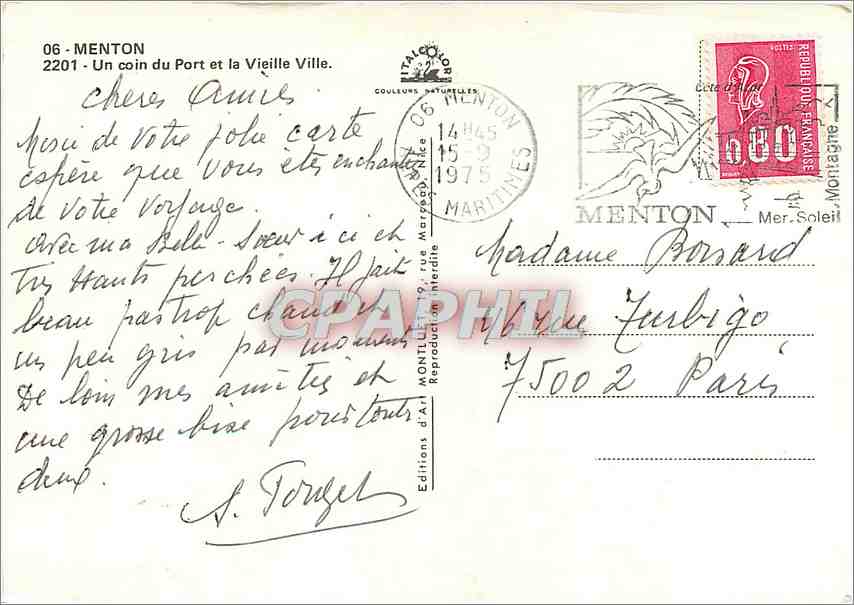 06 - MENTON
2201 - Un coin du Port et la Vieille Ville.
ITALCOLOR
COULEURS NATURELLES
Chères Amies
Merci de votre jolie carte
espère que vous êtes enchantées
de votre voyage.
avec ma Belle-Soeur ici et
très hauts perchées. Il fait
beau pas trop chaud et
un peu gris par moments
De loin mes amitiés et
une grosse bise pour toutes
deux.
S. Pouget
Editions d'Art MONTLUET, 19, rue Marceau, Nice
Reproduction interdite
06 MENTON
14H45
15-9
1975
ALPES MARITIMES
MENTON
Côte d'Azur
Mer. Soleil
Montagne
POSTES
REPUBLIQUE FRANÇAISE
0.80
Madame Bonnard
76 rue Turbigo
75002 Paris
CPAPHIL